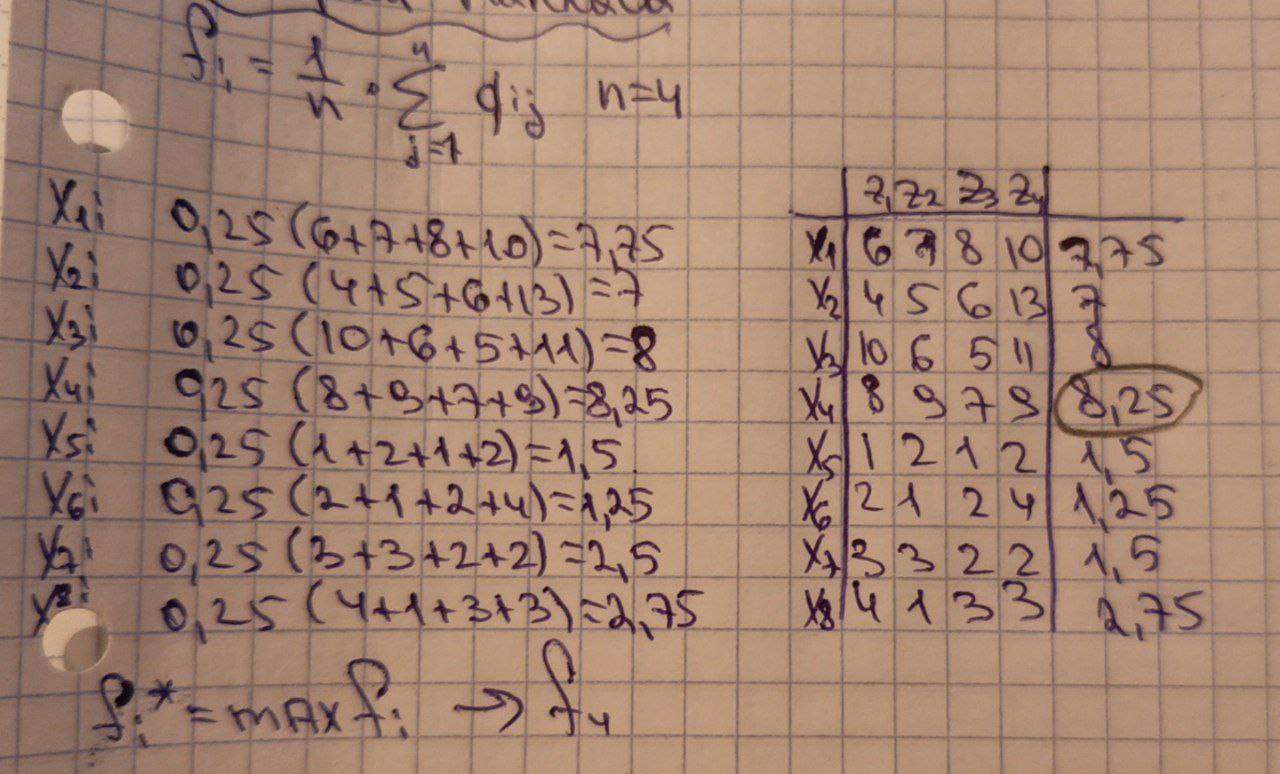 f_i = 1/n · Σ_{j=1}^{4} q_ij n=4
X1: 0,25 (6+7+8+10)=7,75
X2: 0,25 (4+5+6+13)=7
X3: 0,25 (10+6+5+11)=8
X4: 0,25 (8+9+7+9)=8,25
X5: 0,25 (1+2+1+2)=1,5
X6: 0,25 (2+1+2+4)=1,25
X7: 0,25 (3+3+2+2)=2,5
X8: 0,25 (4+1+3+3)=2,75
f_i* = max f_i → f_4
Z1 Z2 Z3 Z4
X1 6 7 8 10 7,75
X2 4 5 6 13 7
X3 10 6 5 11 8
X4 8 9 7 9 8,25
X5 1 2 1 2 1,5
X6 2 1 2 4 1,25
X7 3 3 2 2 1,5
X8 4 1 3 3 2,75